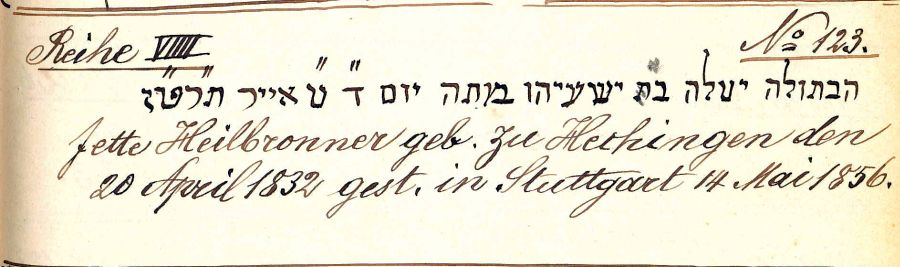 Reihe VIIII   No 123.
הבתולה יעלה בת ישעיהו מתה יום ד״ ט״ אייר ת״ר״ט״ז
Jette Heilbronner geb. zu Hechingen den
20 April 1832 gest. in Stuttgart 14 Mai 1856.